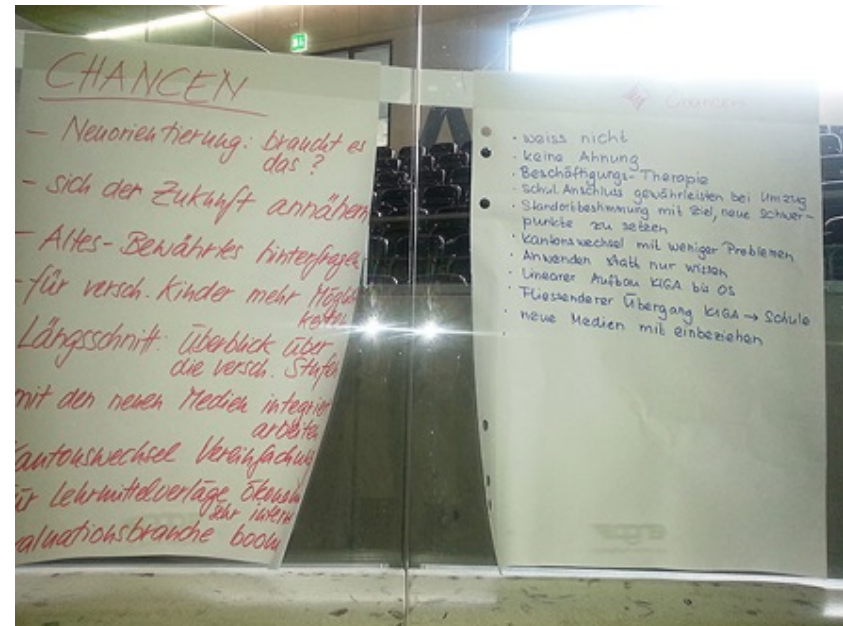 CHANCEN
- Neuorientierung: braucht es
das?
- sich der Zukunft annähern
- Altes-Bewährtes hinterfragen
- für versch. Kinder mehr
Längsschnitt: Überblick über
die versch. Stufen
mit den neuen Medien
arbeiten
Kantonswechsel
für Lehrmittelverlage
sehr
boom
Chancen
· weiss nicht
· keine Ahnung
· Beschäftigungs-Therapie
· Schul Anschluss gewährleisten bei Umzug
· Standortbestimmung mit Ziel, neue Schwer-
punkte zu setzen
· Kantonswechsel mit weniger Problemen
· Anwenden statt nur wissen
· Linearer Aufbau KIGA bis OS
· Fliessenderer Übergang KIGA → Schule
· neue Medien mit einbeziehen